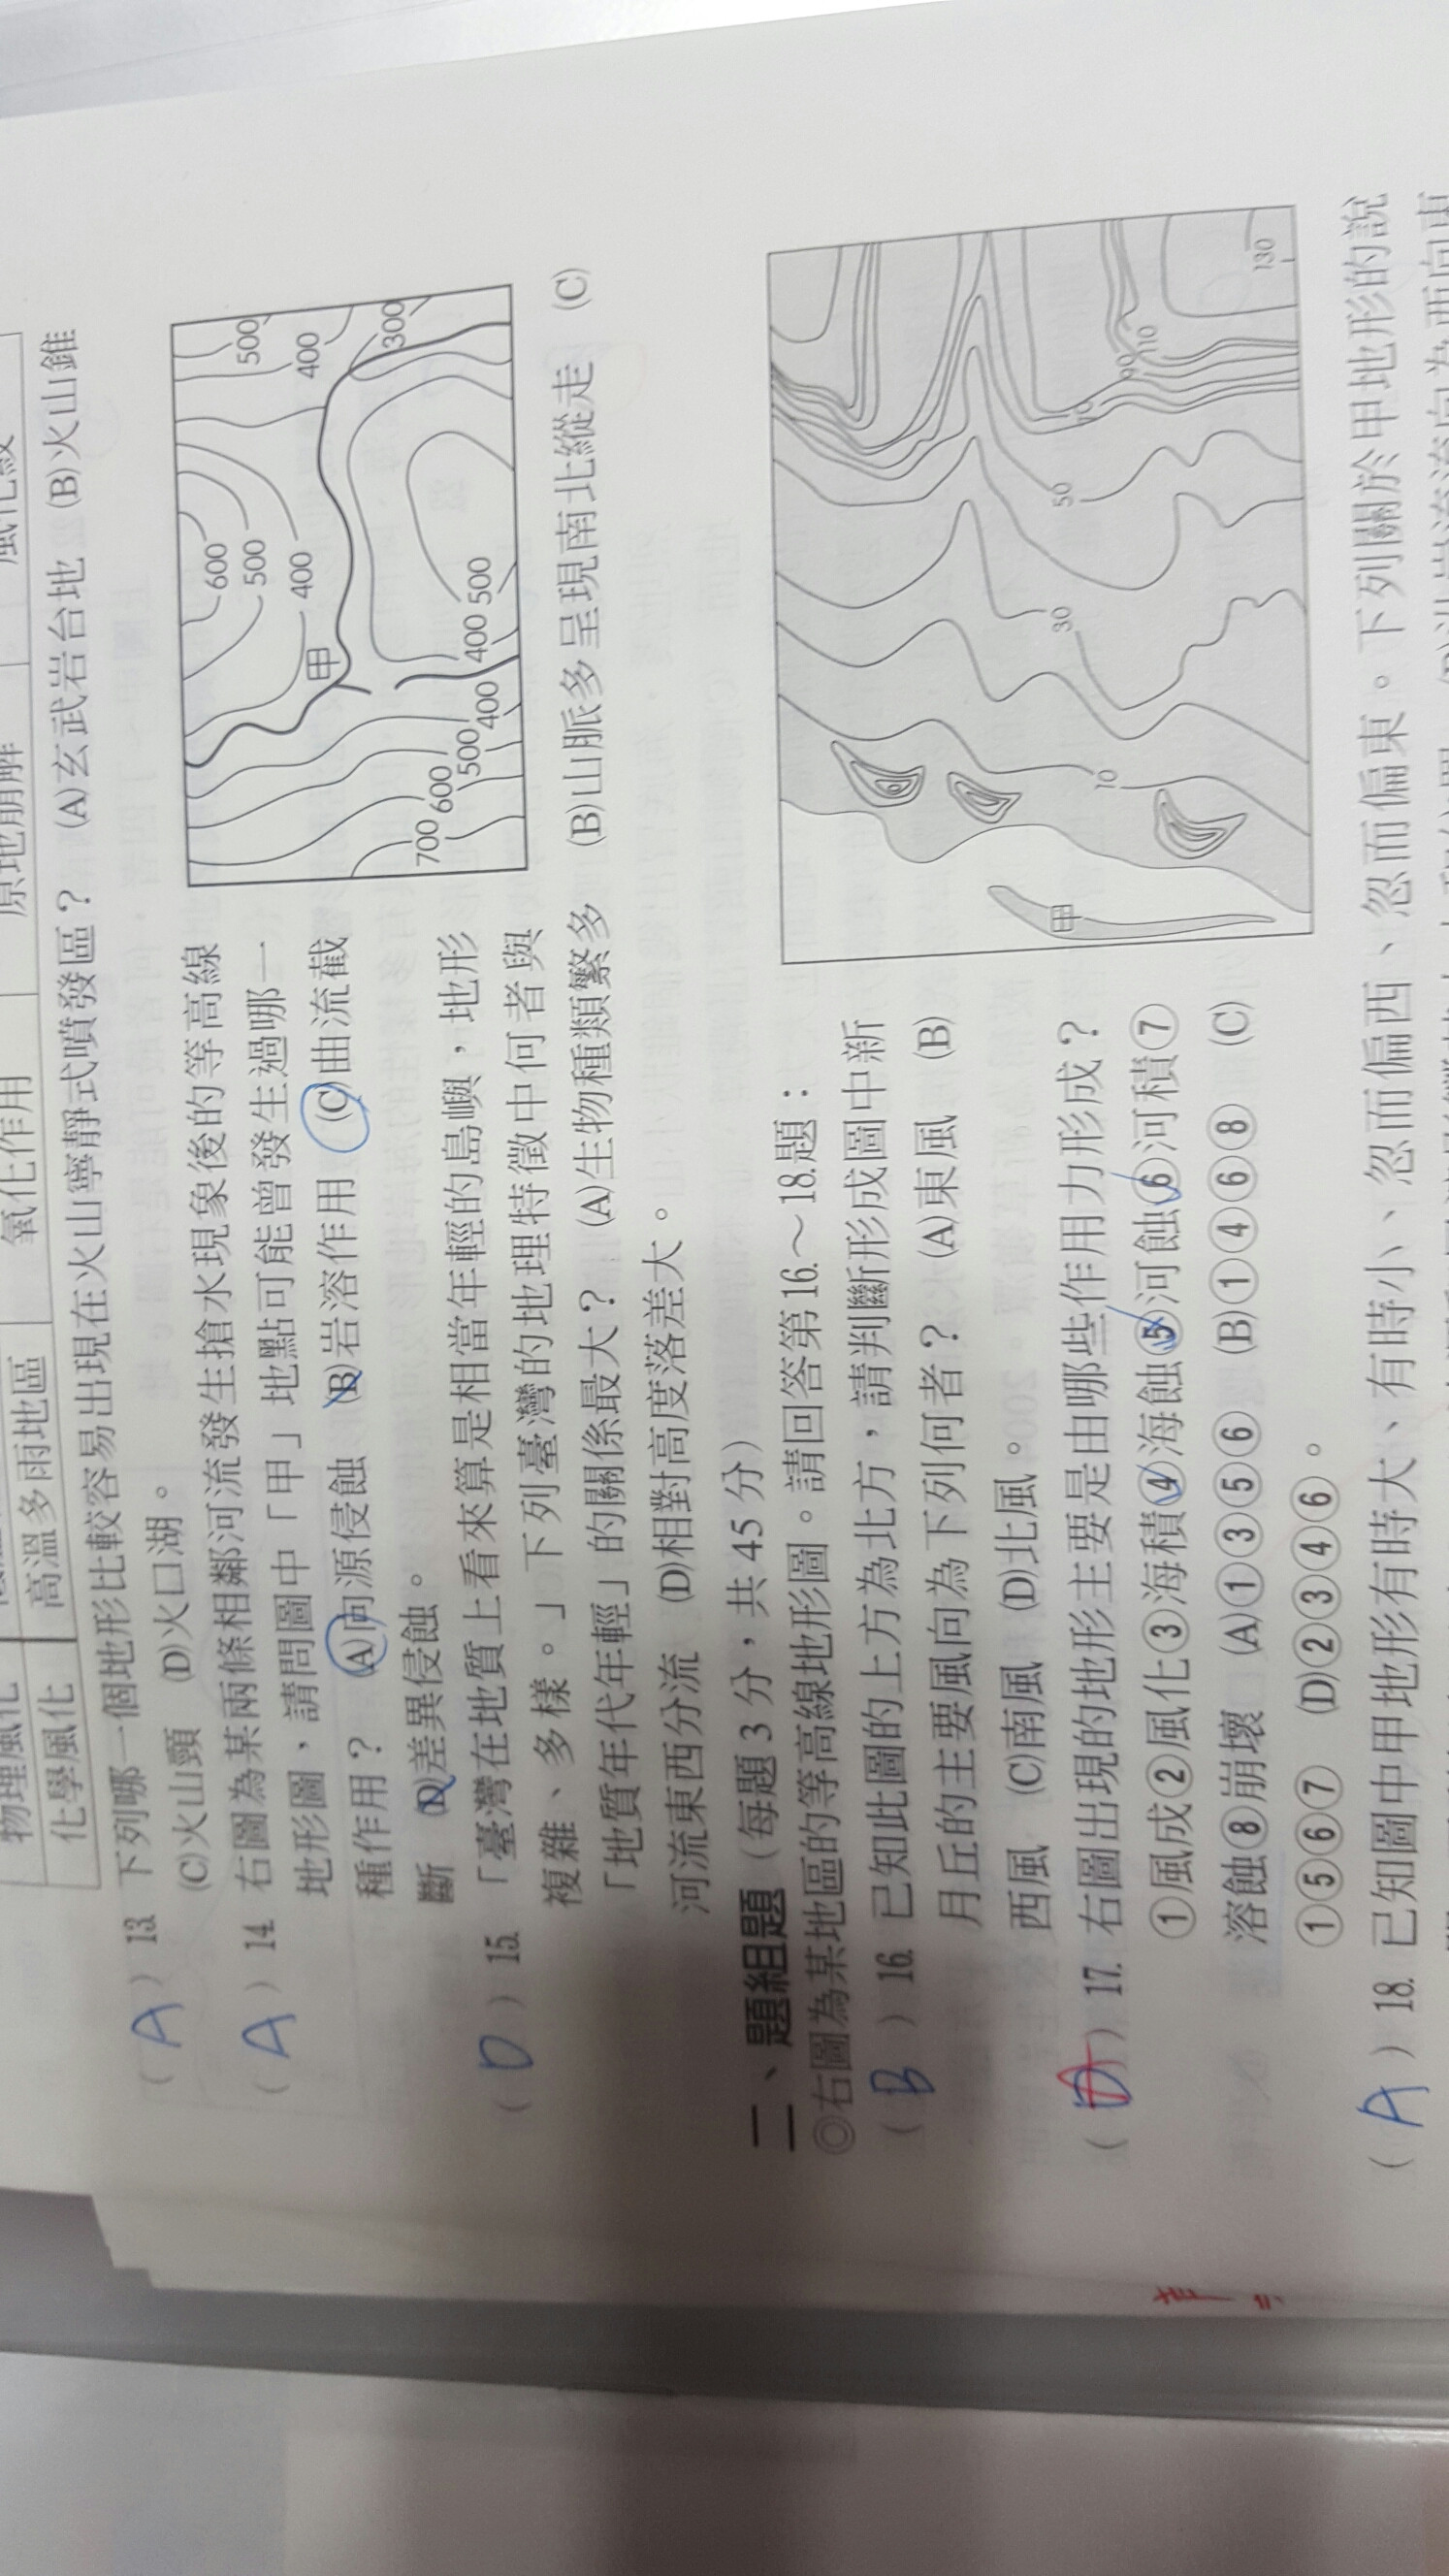 物理風化
化學風化 高溫多雨地區 氧化作用 原地崩解
( A ) 13. 下列哪一個地形比較容易出現在火山寧靜式噴發區？ (A)玄武岩台地 (B)火山錐
(C)火山頸 (D)火口湖。
( A ) 14. 右圖為某兩條相鄰河流發生搶水現象後的等高線
地形圖，請問圖中「甲」地點可能曾發生過哪一
種作用？ (A)向源侵蝕 (B)岩溶作用 (C)曲流截
斷 (D)差異侵蝕。
600
500
400
甲
500
400
300
400
500
400
500
600
700
( D ) 15. 「臺灣在地質上看來算是相當年輕的島嶼，地形
複雜、多樣。」下列臺灣的地理特徵中何者與
「地質年代年輕」的關係最大？ (A)生物種類繁多 (B)山脈多呈現南北縱走 (C)
河流東西分流 (D)相對高度落差大。
二、題組題（每題 3 分，共 45 分）
◎右圖為某地區的等高線地形圖。請回答第16.～18.題：
( B ) 16. 已知此圖的上方為北方，請判斷形成圖中新
月丘的主要風向為下列何者？ (A)東風 (B)
西風 (C)南風 (D)北風。
( D ) 17. 右圖出現的地形主要是由哪些作用力形成？
①風成②風化③海積④海蝕⑤河蝕⑥河積⑦
溶蝕⑧崩壞 (A)①③⑤⑥ (B)①④⑥⑧ (C)
①⑤⑥⑦ (D)②③④⑥。
甲
10
30
50
70
90
110
130
( A ) 18. 已知圖中甲地形有時大、有時小、忽而偏西、忽而偏東。下列關於甲地形的說